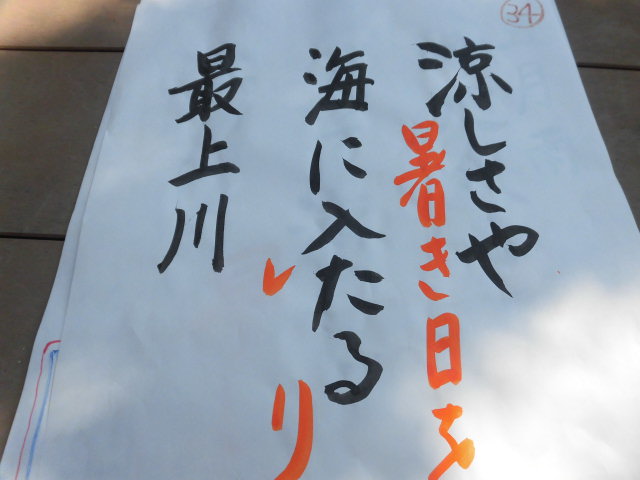 34
涼しさや
暑き日を
海に入たる
れり
最上川